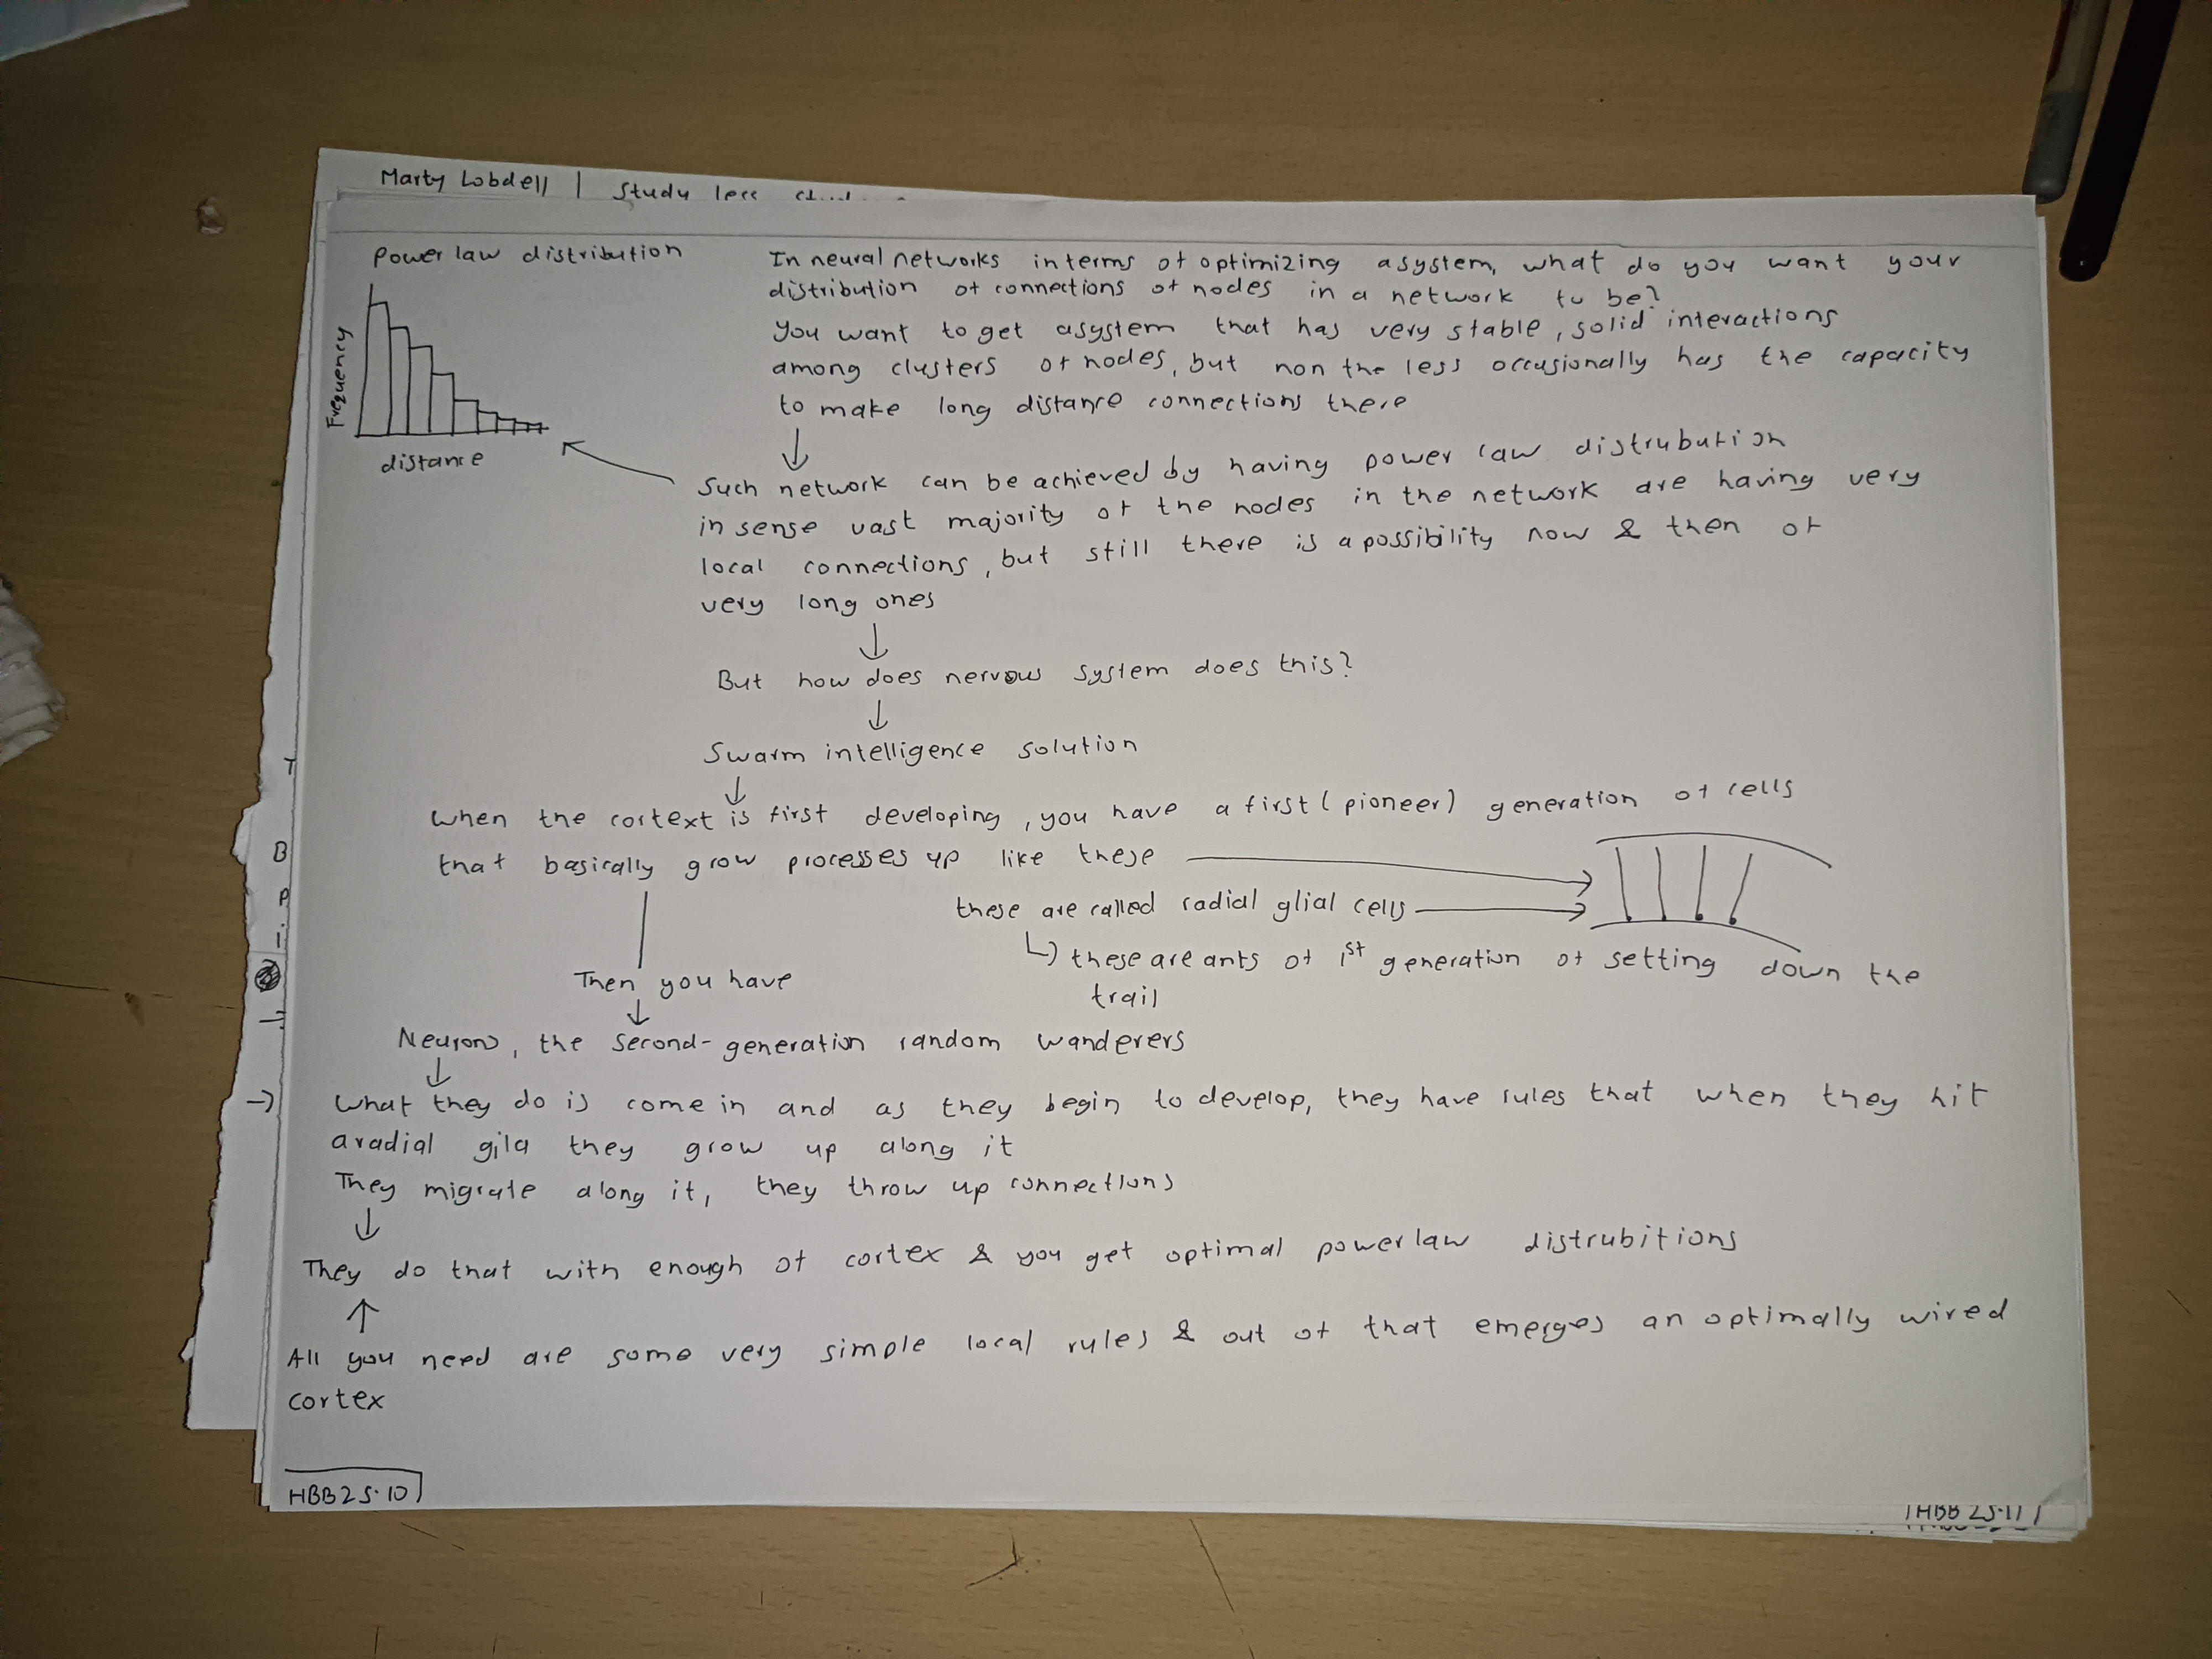 Marty Lobdell | Study less
Power law distribution
Frequency
distance
In neural networks in terms of optimizing a system, what do you want your
distribution of connections of nodes in a network to be?
You want to get a system that has very stable, solid interactions
among clusters of nodes, but non the less occasionally has the capacity
to make long distance connections there
↓
Such network can be achieved by having power law distrubution
in sense vast majority of the nodes in the network are having very
local connections, but still there is a possibility now & then of
very long ones
↓
But how does nervous system does this?
↓
Swarm intelligence solution
↓
When the cortext is first developing, you have a first (pioneer) generation of cells
that basically grow processes up like these
these are called radial glial cells
↳ these are ants of 1st generation of setting down the
trail
Then you have
↓
Neurons, the second-generation random wanderers
↓
What they do is come in and as they begin to develop, they have rules that when they hit
a radial gila they grow up along it
They migrate along it, they throw up connections
↓
They do that with enough of cortex & you get optimal power law distrubitions
↑
All you need are some very simple local rules & out of that emerges an optimally wired
cortex
HBB25.10
HBB 25.11
T
B
P
→